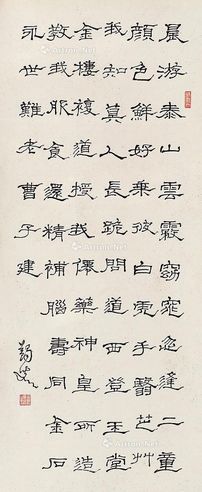 晨游泰山雲霧窈窕忽逢二童
顏色鮮好乘彼白鹿手翳芝艸
我知真人長跪問道西登玉堂
金樓複道授我僊藥神皇所造
教我服食還精補腦壽同金石
永世難老曹子建